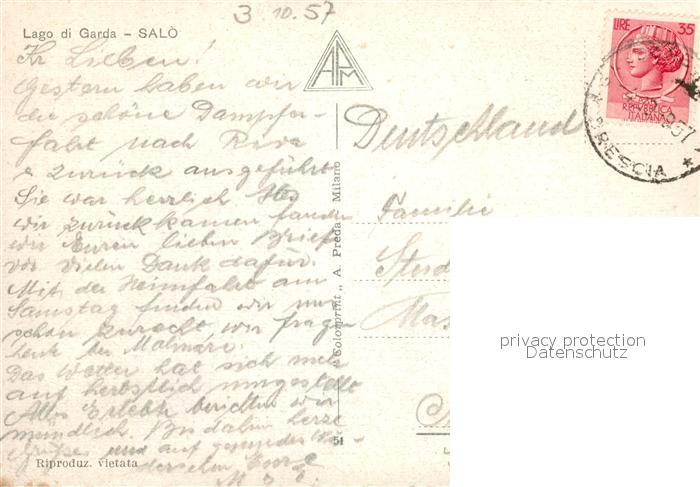 3.10.57
Lago di Garda - SALÒ
Ihr Lieben!
Gestern haben wir
die schöne Dampfer-
fahrt nach Riva
& zurück ausgeführt
Sie war herrlich. Als
wir zurück kamen fanden
wir Euren lieben Brief
vor. Vielen Dank dafür.
Mit der Heimfahrt am
Samstag finden wir uns
schon zurecht wir fragen
heute bei
Das Wetter hat sich mehr
auf herbstlich umgestellt
Alles Erlebte berichten wir
mündlich. Bis dahin herzl
Grüsse und auf gesundes Wie-
dersehen Eure
Riproduz. vietata
APM
"Colorprint" A. Preda - Milano
51
LIRE 35
REPUBBLICA
ITALIANA
BRESCIA
Deutschland
Familie
privacy protection
Datenschutz